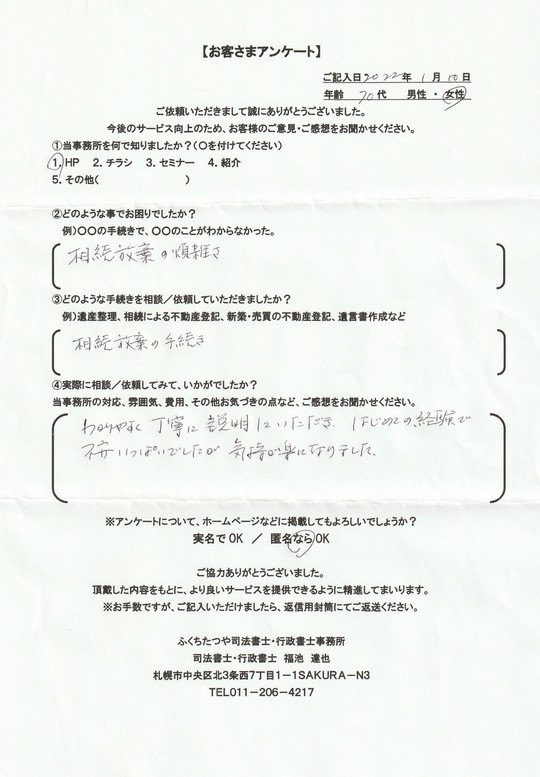 【お客さまアンケート】
ご記入日2022年 1月10日
年齢 70代 男性・女性
ご依頼いただきまして誠にありがとうございました。
今後のサービス向上のため、お客様のご意見・ご感想をお聞かせください。
①当事務所を何で知りましたか?(〇を付けてください)
1. HP 2. チラシ 3. セミナー 4. 紹介
5. その他( )
②どのような事でお困りでしたか?
例)〇〇の手続きで、〇〇のことがわからなかった。
相続放棄の煩雑さ
③どのような手続きを相談/依頼していただきましたか?
例)遺産整理、相続による不動産登記、新築・売買の不動産登記、遺言書作成など
相続放棄の手続き
④実際に相談/依頼してみて、いかがでしたか?
当事務所の対応、雰囲気、費用、その他お気づきの点など、ご感想をお聞かせください。
わかりやすく丁寧に説明していただき はじめての経験で
不安いっぱいでしたが 気持が楽になりました、
※アンケートについて、ホームページなどに掲載してもよろしいでしょうか?
実名でOK / 匿名ならOK
ご協力ありがとうございました。
頂戴した内容をもとに、より良いサービスを提供できるように精進してまいります。
※お手数ですが、ご記入いただけましたら、返信用封筒にてご返送ください。
ふくちたつや司法書士・行政書士事務所
司法書士・行政書士 福池 達也
札幌市中央区北3条西7丁目1-1SAKURA-N3
TEL011-206-4217